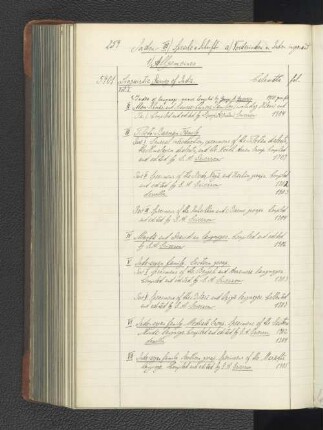 257 Indien B) Sprache & Schrift a) Vorderindien u. Indien insgesamt
1) Allgemeines
5401 Linguistic Survey of India Calcutta fol.
Vol. I
II Mon-Khmer and Siamese-Chinese
compiled and edited by 1904
III Tibeto-Burman Family
Part I General introduction, specimens of the Tibetan dialects,
the Himalayan dialects, and the North Assam Group. Compiled
and edited by G. A. Grierson 1909
Part II Specimens of the Bodo, Naga and Kachin groups. Compiled
and edited by G. A. Grierson
1903
Part III Specimens of the Kuki-Chin and Burma groups. Compiled
and edited by G. A. Grierson 1904
IV Munda and Dravidian languages. Compiled and edited
by G. A. Grierson 1906
V Indo-aryan family. Eastern group.
Part I Specimens of the Bengali and Assamese languages
compiled and edited by G. A. Grierson 1903
Part II Specimens of the Bihari and Oriya languages. Collected
and edited by G. A. Grierson 1903
VI Indo-aryan family. Mediate Group. Specimens of the Eastern
Hindi language. Compiled and edited by G. A. Grierson 1904
VII Indo-aryan family. Southern group. Specimens of the Marathi
language. Compiled and edited by G. A. Grierson 1905